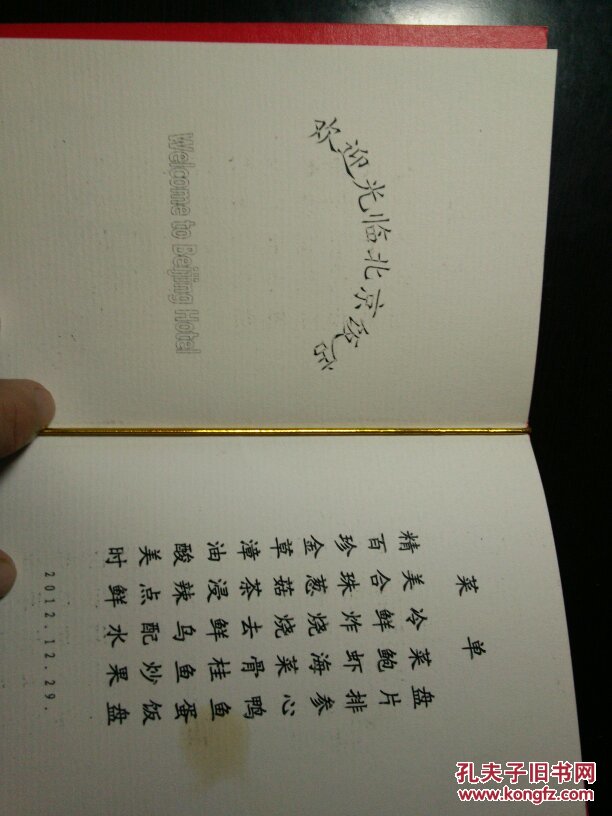 欢迎光临北京饭店
Welcome to Beijing Hotel
菜单
精美冷菜盘
百合鲜鲍片
珍珠炸虾排
金葱烧海参
草菇烧菜心
漳茶去骨鸭
油浸鲜桂鱼
酸辣乌鱼蛋
美点配炒饭
时鲜水果盘
2012.12.29.
孔夫子旧书网
www.kongfz.com